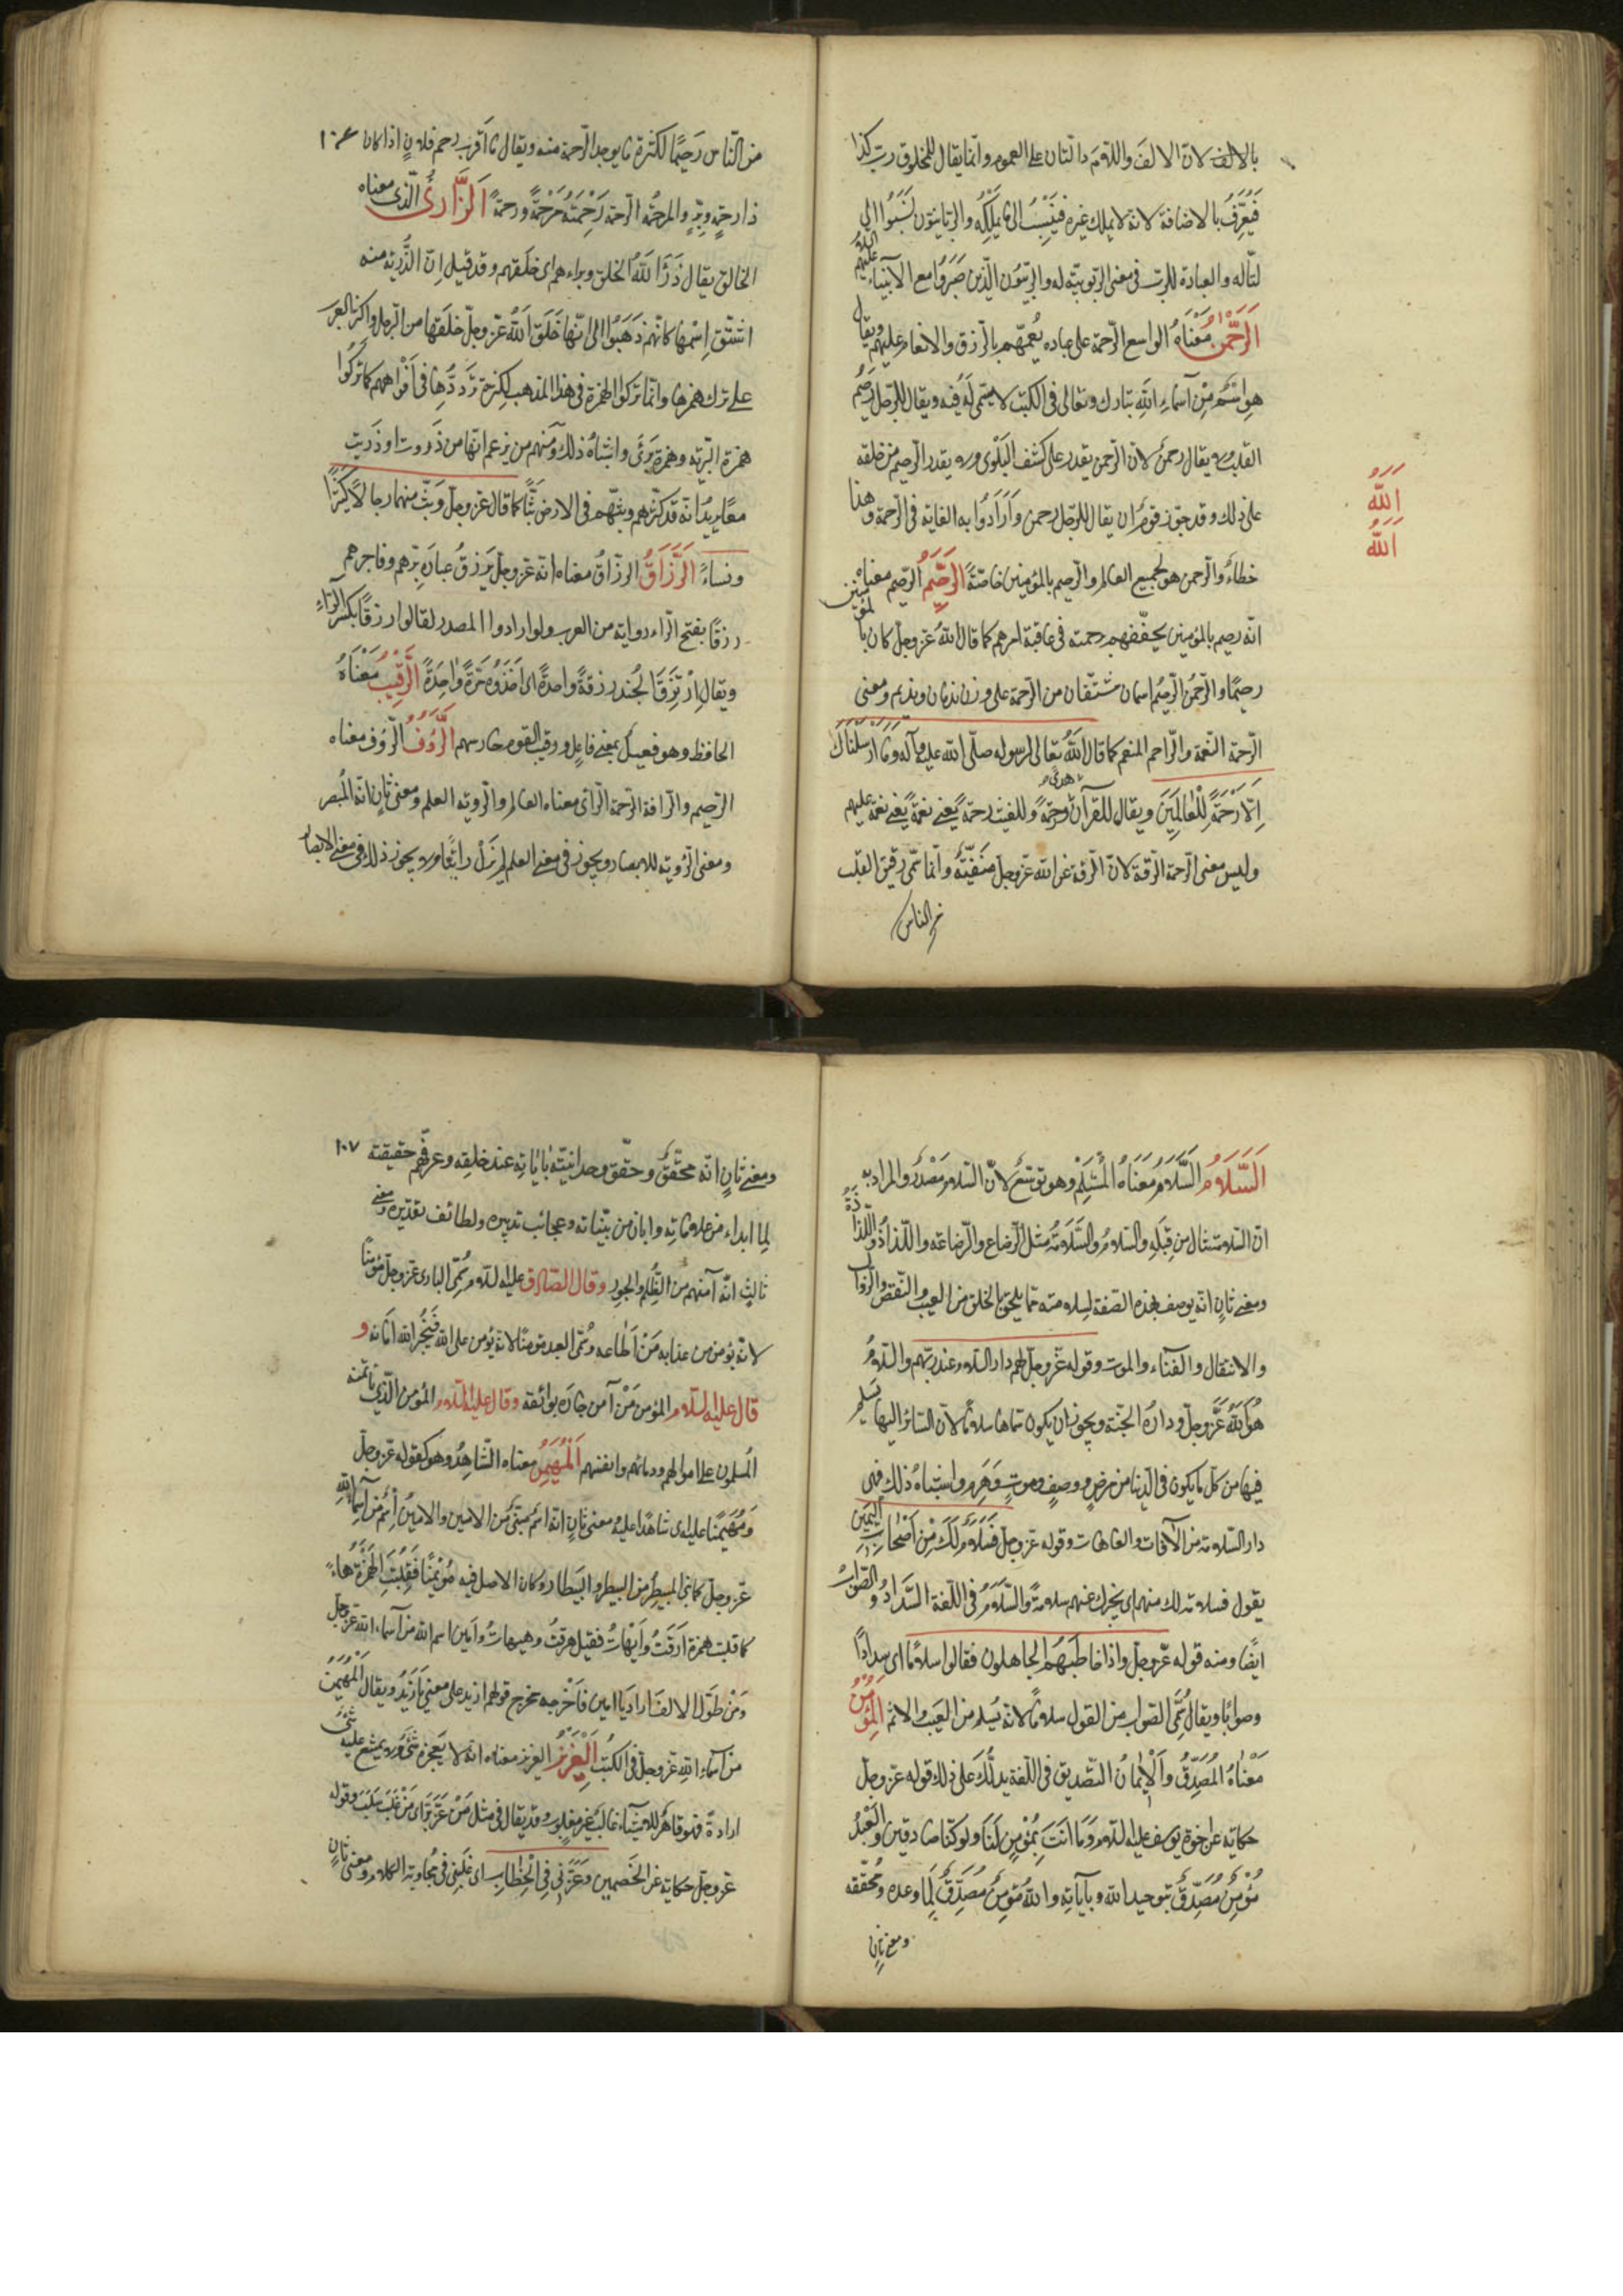 بالالف لانّ الالفَ واللّامَ دالّتان على العموم وانّما يقال للمخلوق ربّ كذا
فَيُعَرَّفُ بالاضافة لانّه لا يملك غيره فَيُنْسَبُ الى ما يملكه والربّانيّون نُسِبُوا الى
التألّه والعبادة للربّ في معنى الربوبيّة له والربّيّون الّذين صَبَرُوا مع الأنبياء عليهم السّلام
اَلرَّحْمٰنُ مَعْنَاهُ الواسع الرّحمة على عباده يُعمّهم بالرّزق والانعام عليهم ويقال
هو اسْمٌ مِنْ أسماءِ اللهِ تبارك وتعالى في الكتب لا سَمِيَّ لَهُ فيه ويقال للرّجل رَحِيمُ
القلب ولا يقال رحمنٌ لانّ الرّحمن يقدر على كشف البَلْوى ولا يقدر الرّحيم من خلقه
على ذلك وقد جوّز قومٌ ان يقال للرّجل رحمن وَاَرَادُوا به الغاية في الرّحمة وهذا
خطاءٌ والرّحمن هو لجميع العالم والرّحيم بالمؤمنين خاصّةً اَلرَّحِيمُ الرّحيم معناه
انّه رحيم بالمؤمنين يخصّهم برحمته في عاقبة امرهم كما قال اللهُ عزّ وجلّ وكان بالمؤمنين
رحيمًا والرّحمنُ الرّحيمُ اسمان مشتقّان من الرّحمة على وزن ندمان ونديم ومعنى
الرّحمة النّعمة والرّاحم المنعم كما قال اللهُ تعالى لرسوله صلّى الله عليه وآله وَمَا أَرْسَلْنَاكَ
اِلَّا رَحْمَةً لِلْعَالَمِينَ ويقال للقرآن هدًى ورحمةً وللغيث رحمةً يعني نعمةً يعني نعمة عليهم
وليس معنى الرّحمة الرّقّة لانّ الرّقّة عن الله عزّ وجلّ مَنْفِيَّةٌ وانّما سمّي رقيق القلب
من النّاس
اَللّٰه
اَللّٰه
من النّاس رَحِيمًا لكثرة ما يوجد الرّحمة منه ويقال ما أقرب رحم فلانٍ اذا كان
١٠٦
ذا رحمٍ وبرٍّ والمرحمة الرّحمة رَحِمْتُهُ مَرْحَمَةً ورحمةً اَلذَّارِئُ الّذي معناه
الخالق يقال ذَرَأَ اللّٰهُ الخلق وبراءهم اي خلقهم وقد قيل اِنّ الذُّرّيّة منه
اشتقّ اِسْمُها كانّهم ذَهَبُوا الى انّها خَلَقَ اللهُ عزّ وجلّ خلقها من الرّجل واكثر العرب
على ترك همزها وانّما تركوا الهمزة في هذا المذهب لكثرة تَرَدُّدِهَا في أفْوَاههم كما تَرَكُوا
همزة البريّه وهمزة بَرَئَ واشباهُ ذلك ومنهم من يزعم انّها من ذَروت او ذَريت
معًا يريدُ انّه قد كثّرهم وبثّهم في الارض بَثًّا كما قال عزّ وجلّ وَبَثَّ منهما رجالًا كثيرًا
ونساءً اَلرَّزَّاقُ الرزّاقُ معناه انّه عزّ وجلّ يَرزقُ عبادَه برّهم وفاجرهم
رزقًا بفتح الرّاء رواية من العرب ولو ارادوا المصدر لقالوا رِزقًا بكسر الرّاء
ويقال اِرْتَزَقَ الجُند رزقةً واحدةً اي اَخَذُوه مَرَّةً وٰاحِدَةً اَلرَّقِيبُ مَعْنَاهُ
الحافظ وهو فعيلٌ بمعنى فاعلٍ ورقيب القوم حارسهم اَلرَّؤُفُ الرّؤف معناه
الرّحيم والرّافة الرّحمة الرّائي معناه العالم والرّوية العلم ومعنى ثانٍ انّه المُبصر
ومعنى الرّؤية للابصار ويجوز في معنى العلم لم يَزل رائيًا ولا يجوز ذلك في معنى الابصار
اَلسَّلَامُ السَّلَامُ مَعْنَاهُ الْمُسَلِّمُ وهو توسّعٌ لانّ السّلام مَصْدَرٌ والمراد به
انّ السّلامة تنال من قِبَلِهِ والسّلامُ والسَّلَامَةُ مثل الرّضاع والرّضاعة واللّذاذُ واللّذاذَةُ
ومعنى ثانٍ انّه يوصف بهذه الصّفة لسلامته ممّا يلحق الخلق من العيب والنّقص والزّوال
والانتقال والفناء والموت وقوله عزّ وجلّ لهم دار السّلام عند ربّهم والسّلامُ
هُوَ اللّٰهُ عَزَّ وجلّ ودارُهُ الجنّة ويجوز ان يكون سمّاها سلامًا لانّ السّائر اليها يسلم
فيها من كلّ ما يكون في الدّنيا من مرضٍ ووصبٍ وموتٍ وَهَرَمٍ واشباهُ ذلك فهي
دار السّلامة من الآفات والعاهات وقوله عزّ وجلّ فَسَلَامٌ لَكَ مِنْ اَصْحٰابِ الْيَمِينِ
يقول فسلامة لك منهم اي يخبرك عنهم سلامةً والسّلَامُ في اللّغة السَّدَادُ والصّوابُ
ايضًا ومنه قوله عزّ وجلّ واذا خاطَبَهُم الجاهلون فقالوا سلامًا اي سدادًا
وصوابًا ويقال سُمّي الصّواب من القول سلامًا لانّه يَسلم من العَيب والاثم اَلْمُؤْمِنُ
مَعْنٰاهُ الْمُصَدِّقُ وَالْاِيْمٰانُ التّصديق في اللّغة يدلُّكَ على ذلك قوله عزّ وجلّ
حكايةً عن اخوة يوسف عليه السّلام وَمَا اَنْتَ بِمُؤْمِنٍ لَنَا ولو كنّا صادقين والْعَبْدُ
مُؤْمِنٌ مُصَدِّقٌ بتوحيد الله وبآياتِه واللهُ مُؤمِنٌ مُصَدِّقٌ لِمَا وعده ومُحَقّقه
ومعنى ثانٍ
ومعنى ثانٍ انّه مُحَقِّقٌ وحقّق وحدانيّتَهُ بآيٰاتِهِ عند خلقِه وعرّفهم حقيقته
١٠٧
لِما ابداء من علاماتِه وابان من بيّناته وعجائب تدبيره ولطائف تقديره ومعنى
ثالثٍ انّه آمنهم من الظّلم والجور وقال الصّادق عليه السّلام سُمّي البارئ عزّ وجلّ مؤمنًا
لانّه يؤمن من عذابه مَنْ اَطٰاعه وسُمّي العبد مؤمنًا لانّه يُؤمن على الله فيُجيز الله امانه و
قال عليه السّلام المؤمن مَنْ آمن جارَه بوائقه وقال عليه السّلام المؤمن الّذي يأتمنه
المسلمون على اموالهم ودمائهم وانفسهم اَلْمُهَيْمِنُ معناه الشّاهِدُ وهو كقوله عزّ وجلّ
وَمُهَيْمِنًا عليه اي شاهدًا عليه ومعنى ثانٍ انّه اسم مبنيٌّ من الامين والامينُ اسْمٌ من اسماءِ اللهِ
عزّ وجلّ كما بُني المبيطر من البيطر والبيطار وكان الاصل فيه مُؤَيْمِنًا فَقُلِبَتِ الهَمْزَةُ هاءً
كما قلبت همزة اَرَقْتُ واَيْهَاتُ فقيل هرقتُ وهيهاتُ وآمين اسم الله من أسماء الله عزّ وجلّ
وَمَنْ طَوّل الالف اراد يا امين فاَخْرجه مخرج قولهم ازيد على معنى يا زَيْدُ ويقال اَلْمُهَيْمِنُ
من اَسماء اللهِ عزّ وجلّ في الكُتُب اَلْعَزِيْزُ العزيز معناه انّه لا يُعجزه شَيْءٌ ولا يمتنع عليه شَيْءٌ
اراده فهو قاهر للاشياء غالِبٌ غير مغلوبٍ وقد يقال في مثلٍ مَنْ عَزَّ بَزَّ اي مَنْ غَلَبَ سَلَبَ وقوله
عزّ وجلّ حكاية عن الخصمين وَعَزَّنِي فِي الْخِطٰابِ اي غَلَبَنِي في مُجاوبة الكلام ومعنى ثانٍ